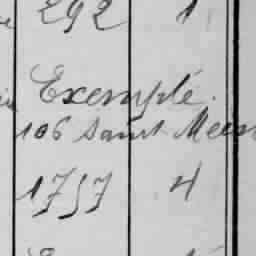 292 1
Exempté.
106 Saint Meen
1757 4